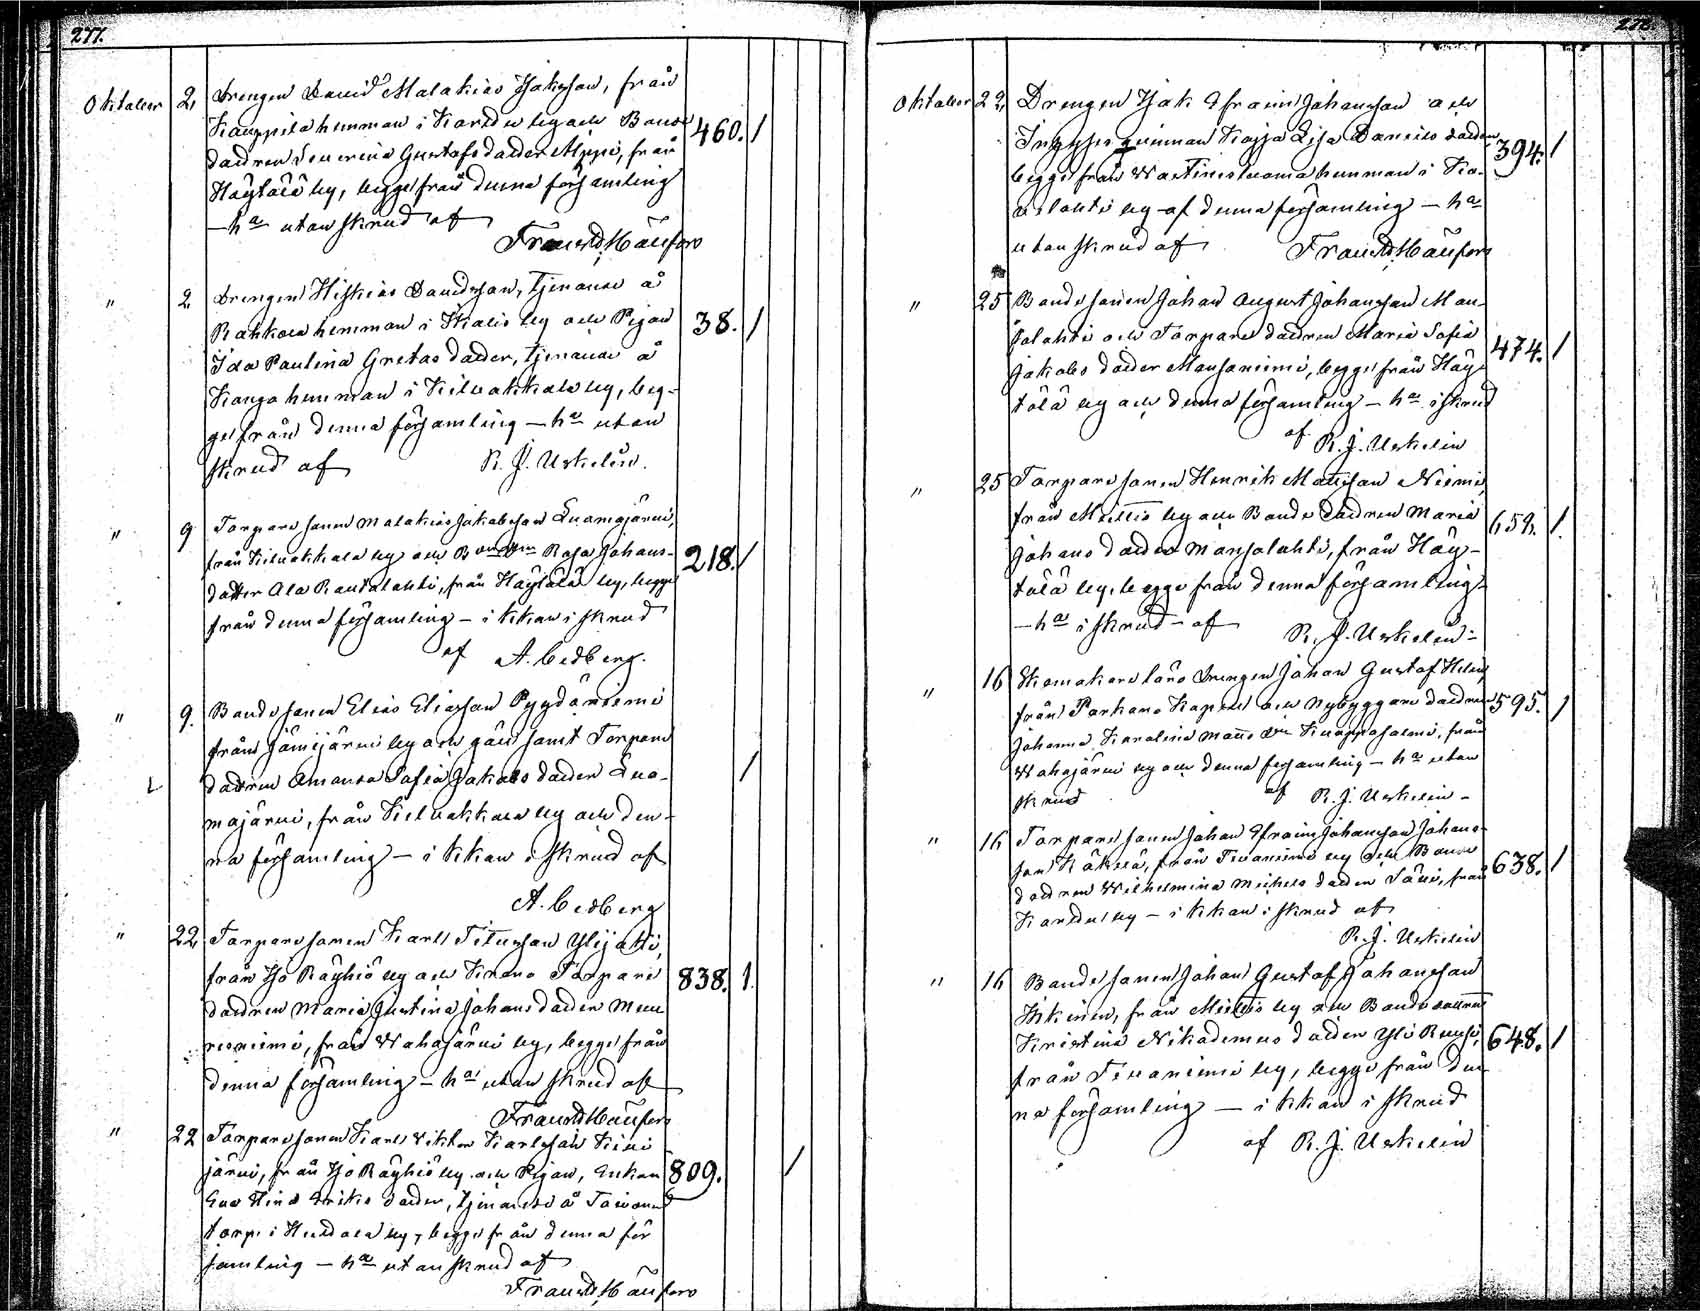 277.
Oktober 2. Drengen David Malakias Isaksson, från
Kauppila hemman i Karttu by och Bonde
dottren Severina Gustafsdotter Äippi, från 460. /
Häytölä by, begge från denna församling
– ha utan skrud af
Frans Wd. Häufors
" 2 Drengen Hiskias Davidsson, tjenande å
Rahkola hemman i Skalis by och Pigan 38. /
Ida Paulina Gretas dotter, tjenande å
Kanga hemman i Kilvakkala by, beg-
ge från denna församling – ha utan
skrud af R. J. Uskelin.
" 9 Torpare sonen Malakias Jakobsson Luomajärvi,
från Kilvakkala by och Bonde dtrn Rosa Johans-
dotter Ala Rautalahti, från Häytölä by, begge 218. /
från denna församling – i kkan i skrud
af A. Cedberg.
" 9. Bonde sonen Elias Eliasson Pyydänniemi
från Jämijärvi by och gäll samt Torpare
dottren Amanda Sofia Jakobs dotter Luo- /
majärvi, från Kilvakkala by och den-
na församling – i kkan i skrud af
A. Cedberg
" 22 Torpare sonen Karl Titusson Ylijotti,
från Iso Röyhiö by och Krono Torpare 838. 1.
dottren Maria Justina Johans dotter Muu
rooniemi, från Wahojärvi by, begge från
denna församling – ha utan skrud af
Frans Wd. Häufors
" 22 Torpare sonen Karl Viktor Karlsson Kivi
järvi, från Iso Röyhiö by och Pigan, Enkan 809. /
Eva Stina Eriks dotter, tjenande å
torp i Heittola by, begge från denna för
samling – ha utan skrud af
Frans Wd. Häufors
278.
Oktober 22, Drengen Isak Efraim Johansson och
Inhyses qvinnan Kajsa Lisa Daniels dotter 394. /
begge från Wartiniluoma hemman i Ko-
velahti by af denna församling – ha
utan skrud af Frans Wd. Häufors
" 25 Bonde sonen Johan August Johansson Man
solahti och Torpare dottren Maria Sofia 474. /
Jakobs dotter Mansoniemi, begge från Häy-
tölä by och denna församling – ha i skrud
af R. J. Uskelin
" 25 Torpare sonen Henrik Mattsson Niemi,
från Miettis by och Bonde dottren Maria 659. /.
Johans dotter Mansolahti, från Häy-
tölä by, begge från denna församling
– ha i skrud – af R. J. Uskelin –
" 16 Skomakare läro Drengen Johan Gustaf Helin,
från Parkano Kapell och Nybyggare dottren 595. /
Johanna Karolina Matts dtr Knaappasalmi, från
Wahojärvi by och denna församling – ha utan
skrud af R. J. Uskelin –
" 16 Torpare sonen Johan Efraim Johansson Johans-
son Käkelä, från Tevaniemi by och Bonde
dottren Wilhelmina Michels dotter Sävi, från 638. /
Karttu by – i kkan i skrud af
R. J. Uskelin
" 16 Bonde sonen Johan Gustaf Johansson
Ikkinen, från Miettis by och Bonde dottren
Kristina Nikodemus dotter Yli Ruusi, 648. /
från Tevaniemi by, begge från den
na församling – i kkan i skrud
af R. J. Uskelin